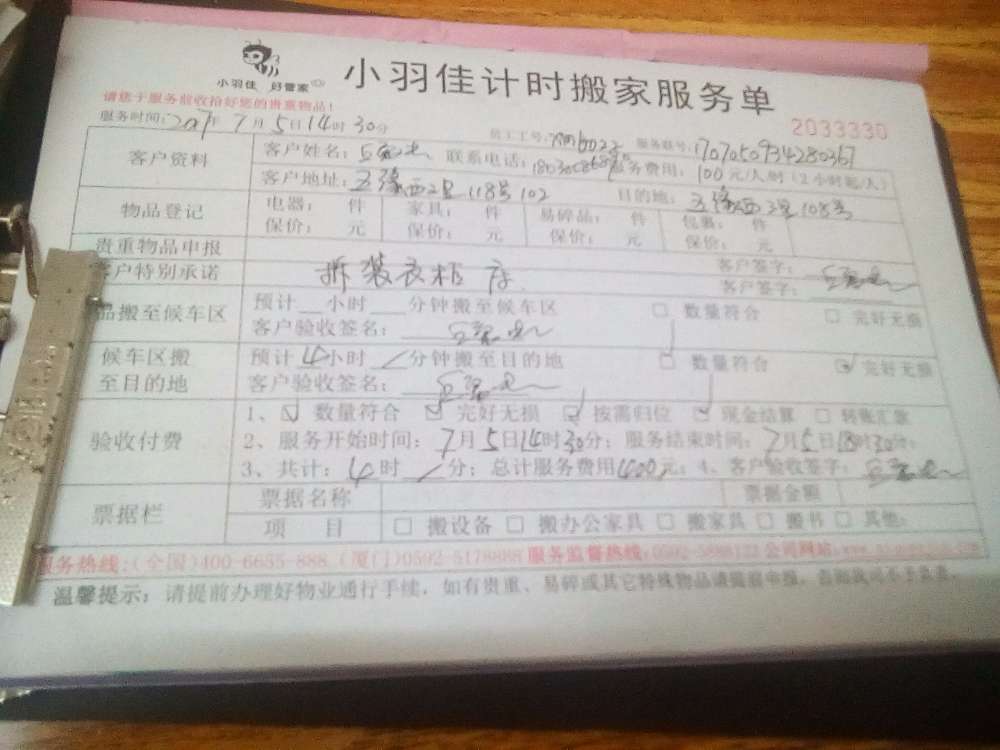 小羽佳 好管家
小羽佳计时搬家服务单
请您于服务前收拾好您的贵重物品！
2033330
服务时间：2017年7月5日14时30分 员工工号： 服务联号：1707050934280367
客户资料 客户姓名： 联系电话： 服务费用：100元/人/时（2小时起/人）
客户地址：五缘西二里118号102 目的地：五缘西二里108号
物品登记 电器： 件 家具： 件 易碎品： 件 包裹： 件
保价： 元 保价： 元 保价： 元 保价： 元
贵重物品申报 客户签字：
客户特别承诺 拆装衣柜 床 客户签字：
品搬至候车区 预计 小时 分钟搬至候车区 □ 数量符合 □ 完好无损
客户验收签名：
候车区搬至目的地 预计4小时/分钟搬至目的地 □ 数量符合 ☑ 完好无损
客户验收签名：
验收付费 1、☑ 数量符合 ☑ 完好无损 ☑ 按需归位 ☑ 现金结算 □ 转账汇款
2、服务开始时间：7月5日14时30分；服务结束时间：7月5日18时30分；
3、共计：4时/分；总计服务费用400元；4、客户验收签字：
票据栏 票据名称 票据金额
项 目 □ 搬设备 □ 搬办公家具 □ 搬家具 □ 搬书 □ 其他：
服务热线：（全国）400-6655-888（厦门）0592-5178888 服务监督热线： 公司网站：
温馨提示：请提前办理好物业通行手续，如有贵重、易碎或其它特殊物品请提前申报，否则我司不予负责。